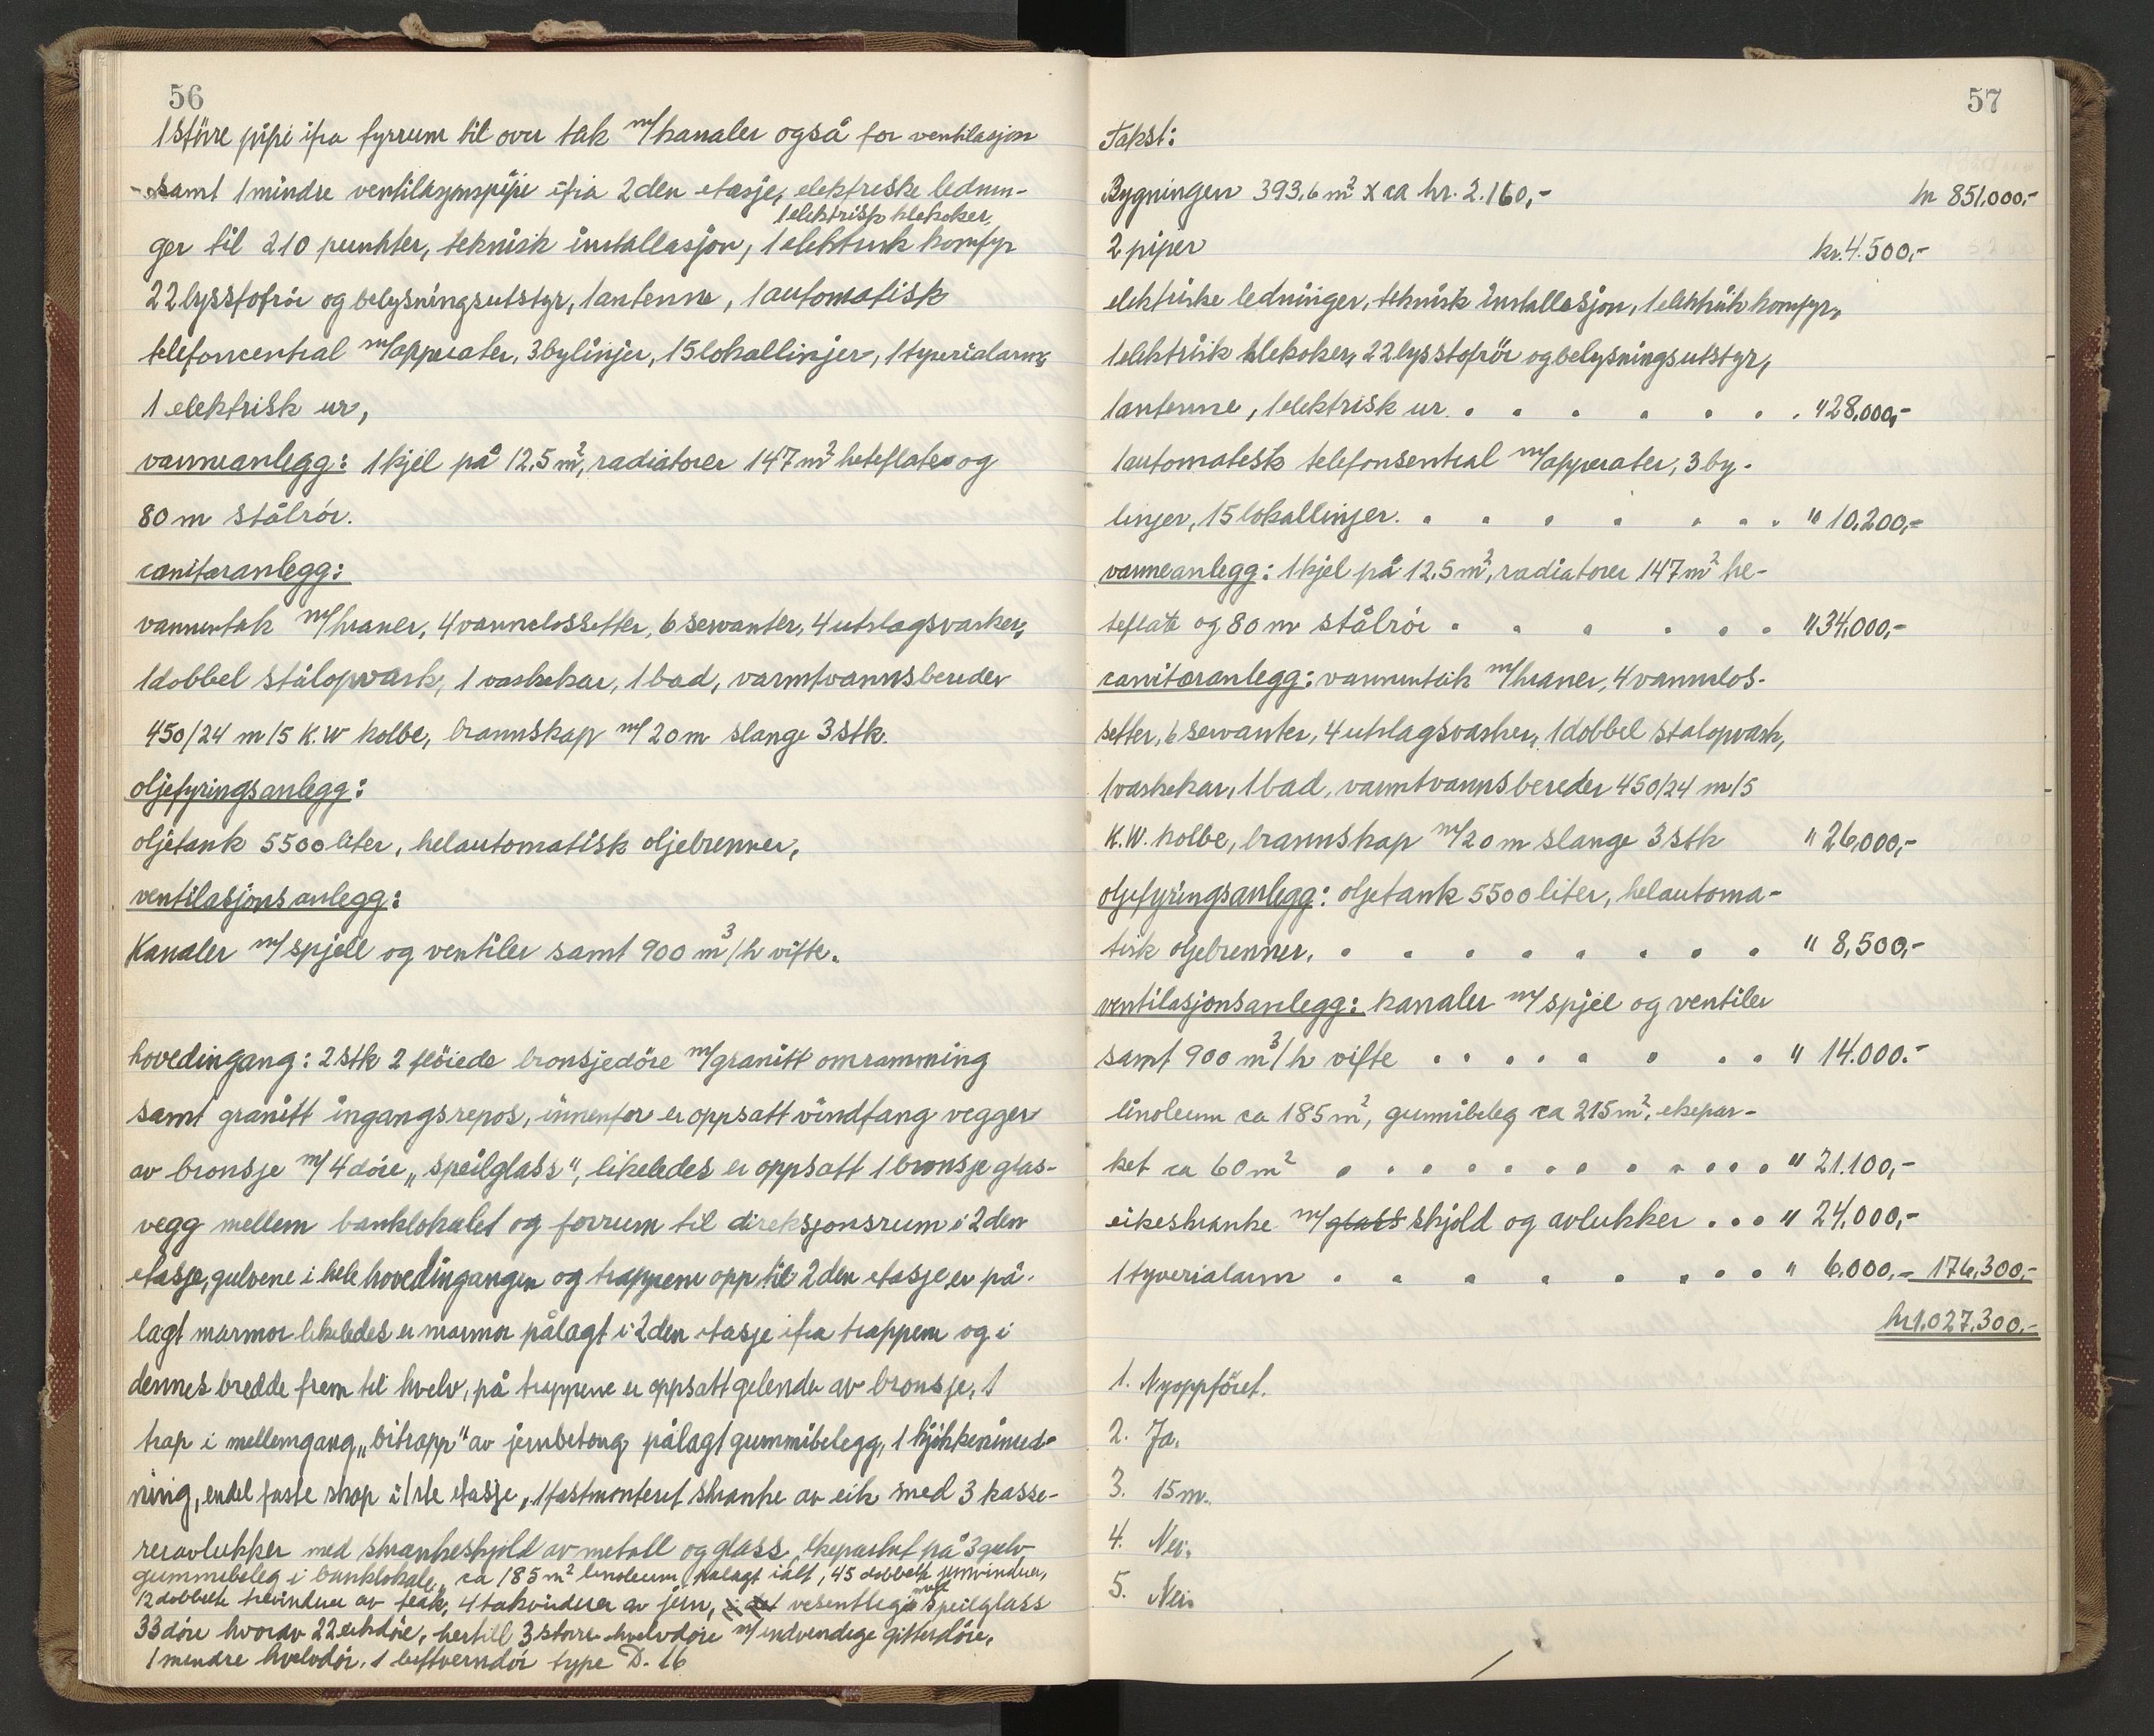 56
1 större pipe ifra fyrrum til over tak m/kanaler også for ventilasjon
samt 1 mindre ventilasjonspipe ifra 2den etasje, elektriske lednin-
1 elektrisk kokeker,
ger til 210 punkter, teknisk installasjon, 1 elektrisk komfyr
22 lysstofrör og belysningsutstyr, 1 antenne, 1 automatisk
telefoncentral m/apperater, 3 bylinjer, 15 lokallinjer, 1 tyverialarm,
1 elektrisk ur,
varmeanlegg: 1 kjel på 12.5 m², radiatorer 147 m² heteflater og
80 m stålrör.
sanitæranlegg:
vanninntak m/kraner, 4 vannclossetter, 6 servanter, 4 utslagsvasker,
1 dobbel stålopvask, 1 vaskekar, 1 bad, varmtvannsbereder
450/24 m/5 K.W kolbe, brannskap m/20 m slange 3 stk.
oljefyringsanlegg:
oljetank 5500 liter, helautomatisk oljebrenner,
ventilasjonsanlegg:
Kanaler m/spjell og ventiler samt 900 m³/h vifte.
hovedingang: 2 stk 2 flöiede bronsjedöre m/granitt omramming
samt granitt ingangsrepos, innenfor er oppsatt vindfang vegger
av bronsje m/4 döre „speilglass“, likeledes er oppsatt 1 bronsje glas-
vegg mellem banklokalet og forrum til direksjonsrum i 2den
etasje, gulvene i hele hovedingangen og trappene opp til 2den etasje er på-
lagt marmor likeledes er marmor pålagt i 2den etasje ifra trappene og i
dennes bredde frem til hvelv, på trappene er oppsatt gelender av bronsje, 1
trap i mellemgang „bitrapp“ av jernbetong pålagt gummibelegg, 1 kjökkeninred-
ning, endel faste skap i 1ste etasje, 1 fastmonteret skranke av eik med 3 kasse-
reravlukker med skrankeskjold av metall og glass, ekeparket på 3 gulv
gummibeleg i banklokale, ca 185 m² linoleum pålagt ialt, 45 dobbelt jernvinduer,
12 dobbelte trevinduer av teak, 4 takvinduer av jern, i det vesentlige med speilglass
33 döre hvorav 22 eikdöre, hertill 3 större hvelvdöre m/indvendige gitterdöre,
1 mindre hvelvdör, 1 luftverndör type D. 16
57
Takst:
Bygningen 393,6 m² x ca kr. 2.160,- kr 851.000,-
2 piper kr. 4.500,-
elektriske ledninger, teknisk installasjon, 1 elektrisk komfyr,
1 elektrisk kokeker, 22 lysstofrör og belysningsutstyr,
1 antenne, 1 elektrisk ur . . . . . . . " 28.000,-
1 automatisk telefonsentral m/apperater, 3 by-
linjer, 15 lokallinjer. . . . . . . . " 10.200,-
varmeanlegg: 1 kjel på 12.5 m², radiatorer 147 m² he-
teflate og 80 m stålrör . . . . . . " 34.000,-
sanitæranlegg: vanninntak m/kraner, 4 vannclos-
setter, 6 servanter, 4 utslagsvasker, 1 dobbel stalopvask,
1 vaskekar, 1 bad, varmtvannsbereder 450/24 m/5
K.W. kolbe, brannskap m/20 m slange 3 stk " 26.000,-
oljefyringsanlegg: oljetank 5500 liter, helautoma-
tisk oljebrenner. . . . . . . . . " 8.500,-
ventilasjonsanlegg: kanaler m/spjel og ventiler
samt 900 m³/h vifte . . . . . . . . " 14.000.-
linoleum ca 185 m², gummibeleg ca 215 m², ekepar-
ket ca 60 m² . . . . . . . . . . . . " 21.100,-
eikeskranke m/glass skjold og avlukker . . . " 24.000,-
1 tyverialarm . . . . . . . . . " 6.000,- 176.300,-
kr 1.027.300,-
1. Nyoppföret.
2. Ja.
3. 15 m.
4. Nei.
5. Nei.